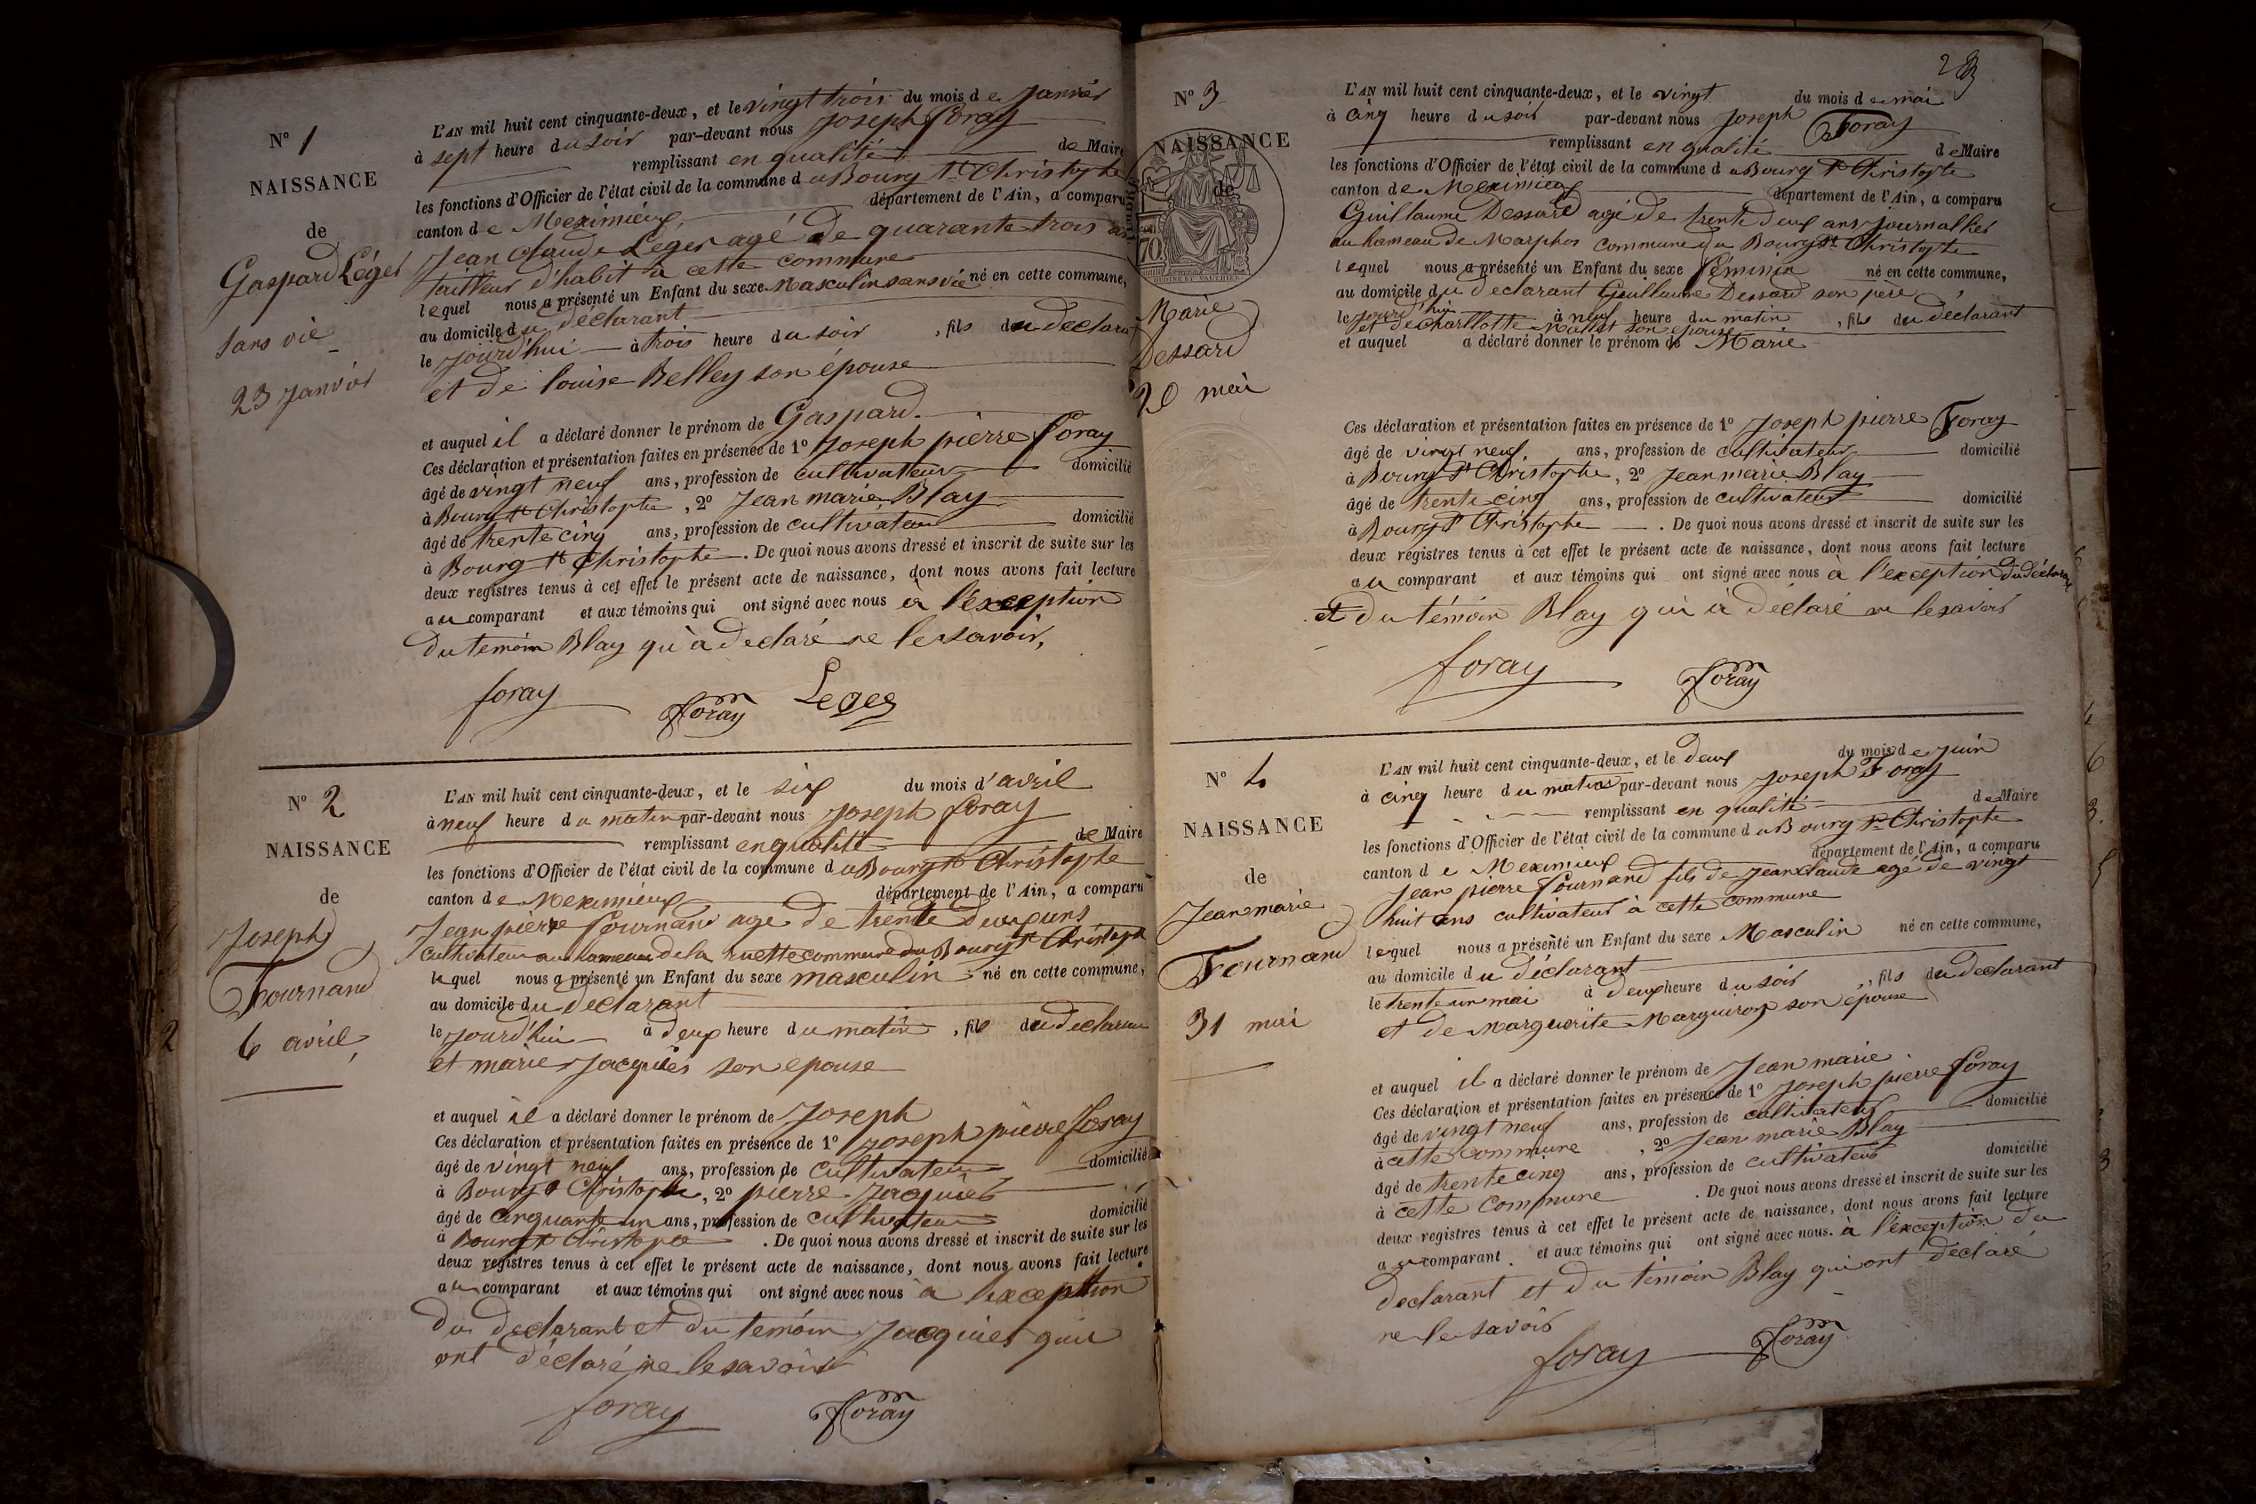 N° 1
NAISSANCE
de
Gaspard Léger
sans vie
23 janvier
L'AN mil huit cent cinquante-deux, et le vingt trois du mois de janvier
à sept heure du soir par-devant nous Joseph foray
remplissant en qualité de Maire
les fonctions d'Officier de l'état civil de la commune du Bourg St Christophe
canton de Meximieux département de l'Ain, a comparu
Jean Claude Léger agé de quarante trois ans
tailleur d'habit à cette commune
lequel nous a présenté un Enfant du sexe Masculin sans vie né en cette commune,
au domicile du déclarant
le jourd'hui à trois heure du soir, fils du déclarant
et de louise Belley son épouse
et auquel il a déclaré donner le prénom de Gaspard.
Ces déclaration et présentation faites en présence de 1° Joseph pierre foray
âgé de vingt neuf ans, profession de cultivateur domicilié
à Bourg St Christophe, 2° Jean marie Blay
âgé de trente cinq ans, profession de cultivateur domicilié
à Bourg St Christophe. De quoi nous avons dressé et inscrit de suite sur les
deux registres tenus à cet effet le présent acte de naissance, dont nous avons fait lecture
au comparant et aux témoins qui ont signé avec nous à l'exception
du temoin Blay qu'à declaré ne le savoir,
foray foray Leger
N° 2
NAISSANCE
de
Joseph
Fournand
6 avril,
2
L'AN mil huit cent cinquante-deux, et le six du mois d'avril
à neuf heure du matin par-devant nous Joseph foray
remplissant en qualité de Maire
les fonctions d'Officier de l'état civil de la commune du Bourg St Christophe
canton de Meximieux département de l'Ain, a comparu
Jean pierre fournand age de trente deux ans
cultivateur au hameau de la ruette commune du Bourg St Christophe
lequel nous a présenté un Enfant du sexe masculin né en cette commune,
au domicile du declarant
le jourd'hui à deux heure du matin, fils du declarant
et marie Jacquies son epouse
et auquel il a déclaré donner le prénom de Joseph
Ces déclaration et présentation faites en présence de 1° Joseph pierre foray
âgé de vingt neuf ans, profession de cultivateur domicilié
à Bourg St Christophe, 2° pierre Jacquies
âgé de cinquante un ans, profession de cultivateur domicilié
à Bourg St Christophe. De quoi nous avons dressé et inscrit de suite sur les
deux registres tenus à cet effet le présent acte de naissance, dont nous avons fait lecture
au comparant et aux témoins qui ont signé avec nous à l'exception
du declarant et du temoin Jacquies qui
ont déclaré ne le savoir
foray foray
N° 3
NAISSANCE
de
Marie
Dessard
20 mai
L'AN mil huit cent cinquante-deux, et le vingt du mois de mai
à cinq heure du soir par-devant nous Joseph Foray
remplissant en qualité de Maire
les fonctions d'Officier de l'état civil de la commune du Bourg St Christophe
canton de Meximieux département de l'Ain, a comparu
Guillaume Dessard agé de trente deux ans journallier
au hameau de Marphos commune du Bourg St Christophe
lequel nous a présenté un Enfant du sexe féminin né en cette commune,
au domicile du declarant Guillaume Dessard son père,
le jourd'hui à neuf heure du matin, fils du déclarant
et de charllotte son epouse
et auquel a déclaré donner le prénom de Marie
Ces déclaration et présentation faites en présence de 1° Joseph pierre Foray
âgé de vingt neuf ans, profession de cultivateur domicilié
à Bourg St Christophe, 2° Jean marie Blay
âgé de trente cinq ans, profession de cultivateur domicilié
à Bourg St Christophe. De quoi nous avons dressé et inscrit de suite sur les
deux registres tenus à cet effet le présent acte de naissance, dont nous avons fait lecture
au comparant et aux témoins qui ont signé avec nous à l'exception du déclarant
et du témoin Blay qui à déclaré ne le savoir
foray foray
N° 4
NAISSANCE
de
Jean marie
Fournand
31 mai
L'AN mil huit cent cinquante-deux, et le deux du mois de juin
à cinq heure du matin par-devant nous Joseph Foray
remplissant en qualité de Maire
les fonctions d'Officier de l'état civil de la commune du Bourg St Christophe
canton de Meximieux département de l'Ain, a comparu
Jean pierre fournand fils de jean claude agé de vingt
huit ans cultivateur à cette commune
lequel nous a présenté un Enfant du sexe Masculin né en cette commune,
au domicile du déclarant
le trente un mai à deux heure du soir, fils du declarant
et de Marguerite Marguiron son épouse
et auquel il a déclaré donner le prénom de Jean marie
Ces déclaration et présentation faites en présence de 1° Joseph pierre foray
âgé de vingt neuf ans, profession de cultivateur domicilié
à cette commune, 2° Jean marie Blay
âgé de trente cinq ans, profession de cultivateur domicilié
à cette commune. De quoi nous avons dressé et inscrit de suite sur les
deux registres tenus à cet effet le présent acte de naissance, dont nous avons fait lecture
au comparant et aux témoins qui ont signé avec nous. à l'exception du
declarant et du témoin Blay qui ont déclaré
ne le savoir
foray foray